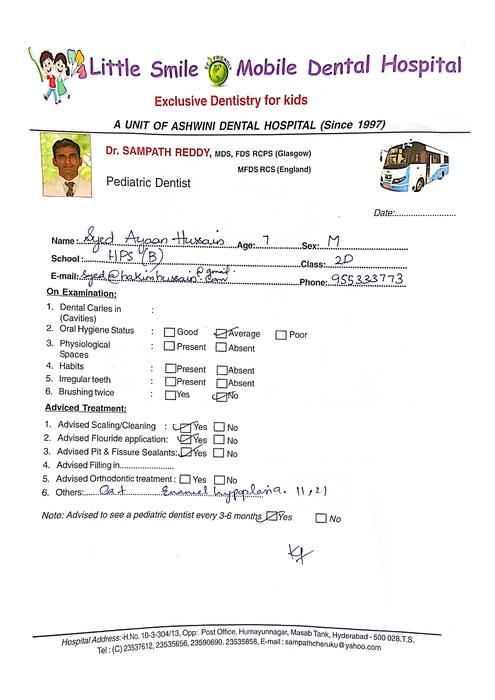 Little Smile ECO FRIENDLY Mobile Dental Hospital
Exclusive Dentistry for kids
A UNIT OF ASHWINI DENTAL HOSPITAL (Since 1997)
Dr. SAMPATH REDDY, MDS, FDS RCPS (Glasgow)
MFDS RCS (England)
Pediatric Dentist
Date:
Name: Syed Ayaan Hussain Age: 7 Sex: M
School: HPS (B) Class: 2D
E-mail: Syed@hakimhussain@gmail.com Phone: 955333773
On Examination:
1. Dental Caries in :
(Cavities)
2. Oral Hygiene Status : Good Average Poor
3. Physiological : Present Absent
Spaces
4. Habits : Present Absent
5. Irregular teeth : Present Absent
6. Brushing twice : Yes No
Adviced Treatment:
1. Advised Scaling/Cleaning : Yes No
2. Advised Flouride application: Yes No
3. Advised Pit & Fissure Sealants: Yes No
4. Advised Filling in
5. Advised Orthodontic treatment : Yes No
6. Others: Enamel hypoplasia. 11, 21
Note: Advised to see a pediatric dentist every 3-6 months Yes No
Hospital Address:-H.No. 10-3-304/13, Opp: Post Office, Humayunnagar, Masab Tank, Hyderabad - 500 028.T.S.
Tel : (C) 23537612, 23535656, 23590690. 23535858, E-mail : sampathcheruku@yahoo.com